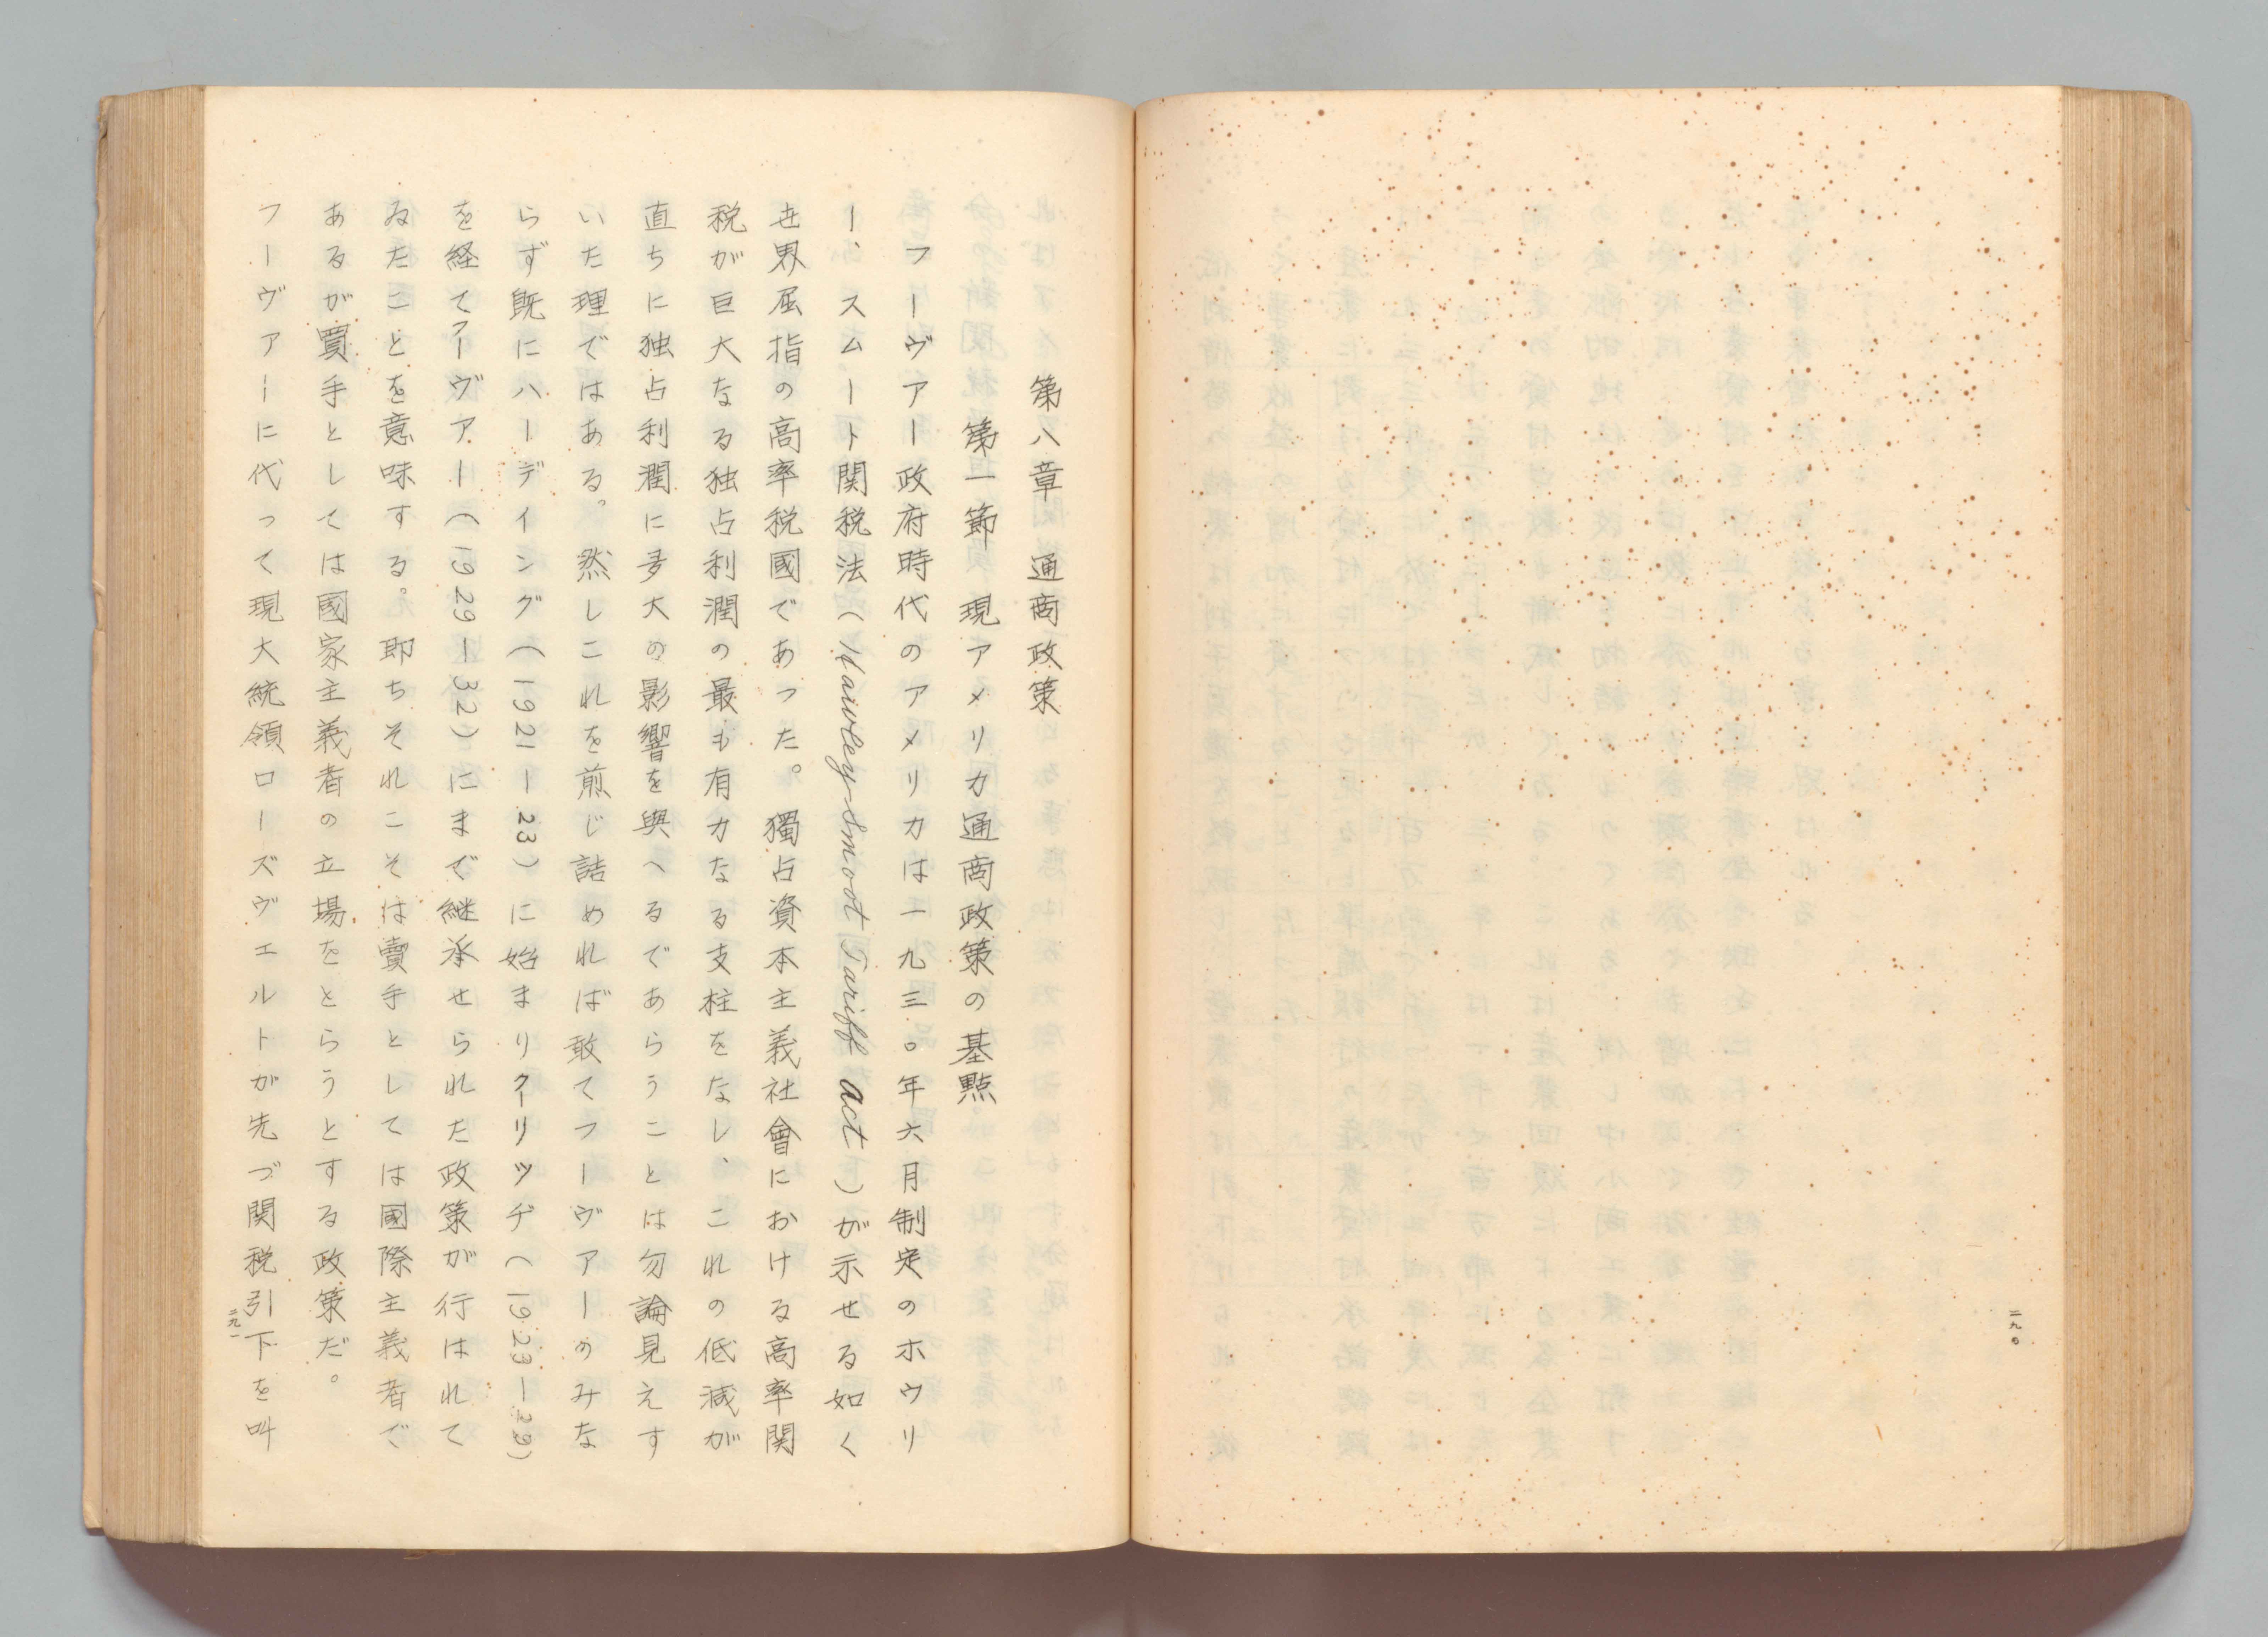 二九〇
第八章 通商政策
第一節 現アメリカ通商政策の基點
フーヴアー政府時代のアメリカは一九三〇年六月制定のホウリ
ー、スムート関税法（Hawley-Smoot Tariff act）が示せる如く
世界屈指の高率税國であつた。獨占資本主義社會における高率関
税が巨大なる独占利潤の最も有力なる支柱をなし、これの低減が
直ちに独占利潤に多大の影響を與へるであらうことは勿論見えす
いた理ではある。然しこれを煎じ詰めれば敢てフーヴアーのみな
らず既にハーデイング（1921―23）に始まりクーリツヂ（1923―29）
を経てフーヴアー（1929―32）にまで継承せられた政策が行はれて
ゐたことを意味する。即ちそれこそは賣手としては國際主義者で
あるが買手としては國家主義者の立場をとらうとする政策だ。
フーヴアーに代つて現大統領ローズヴエルトが先づ関税引下を叫
二九一